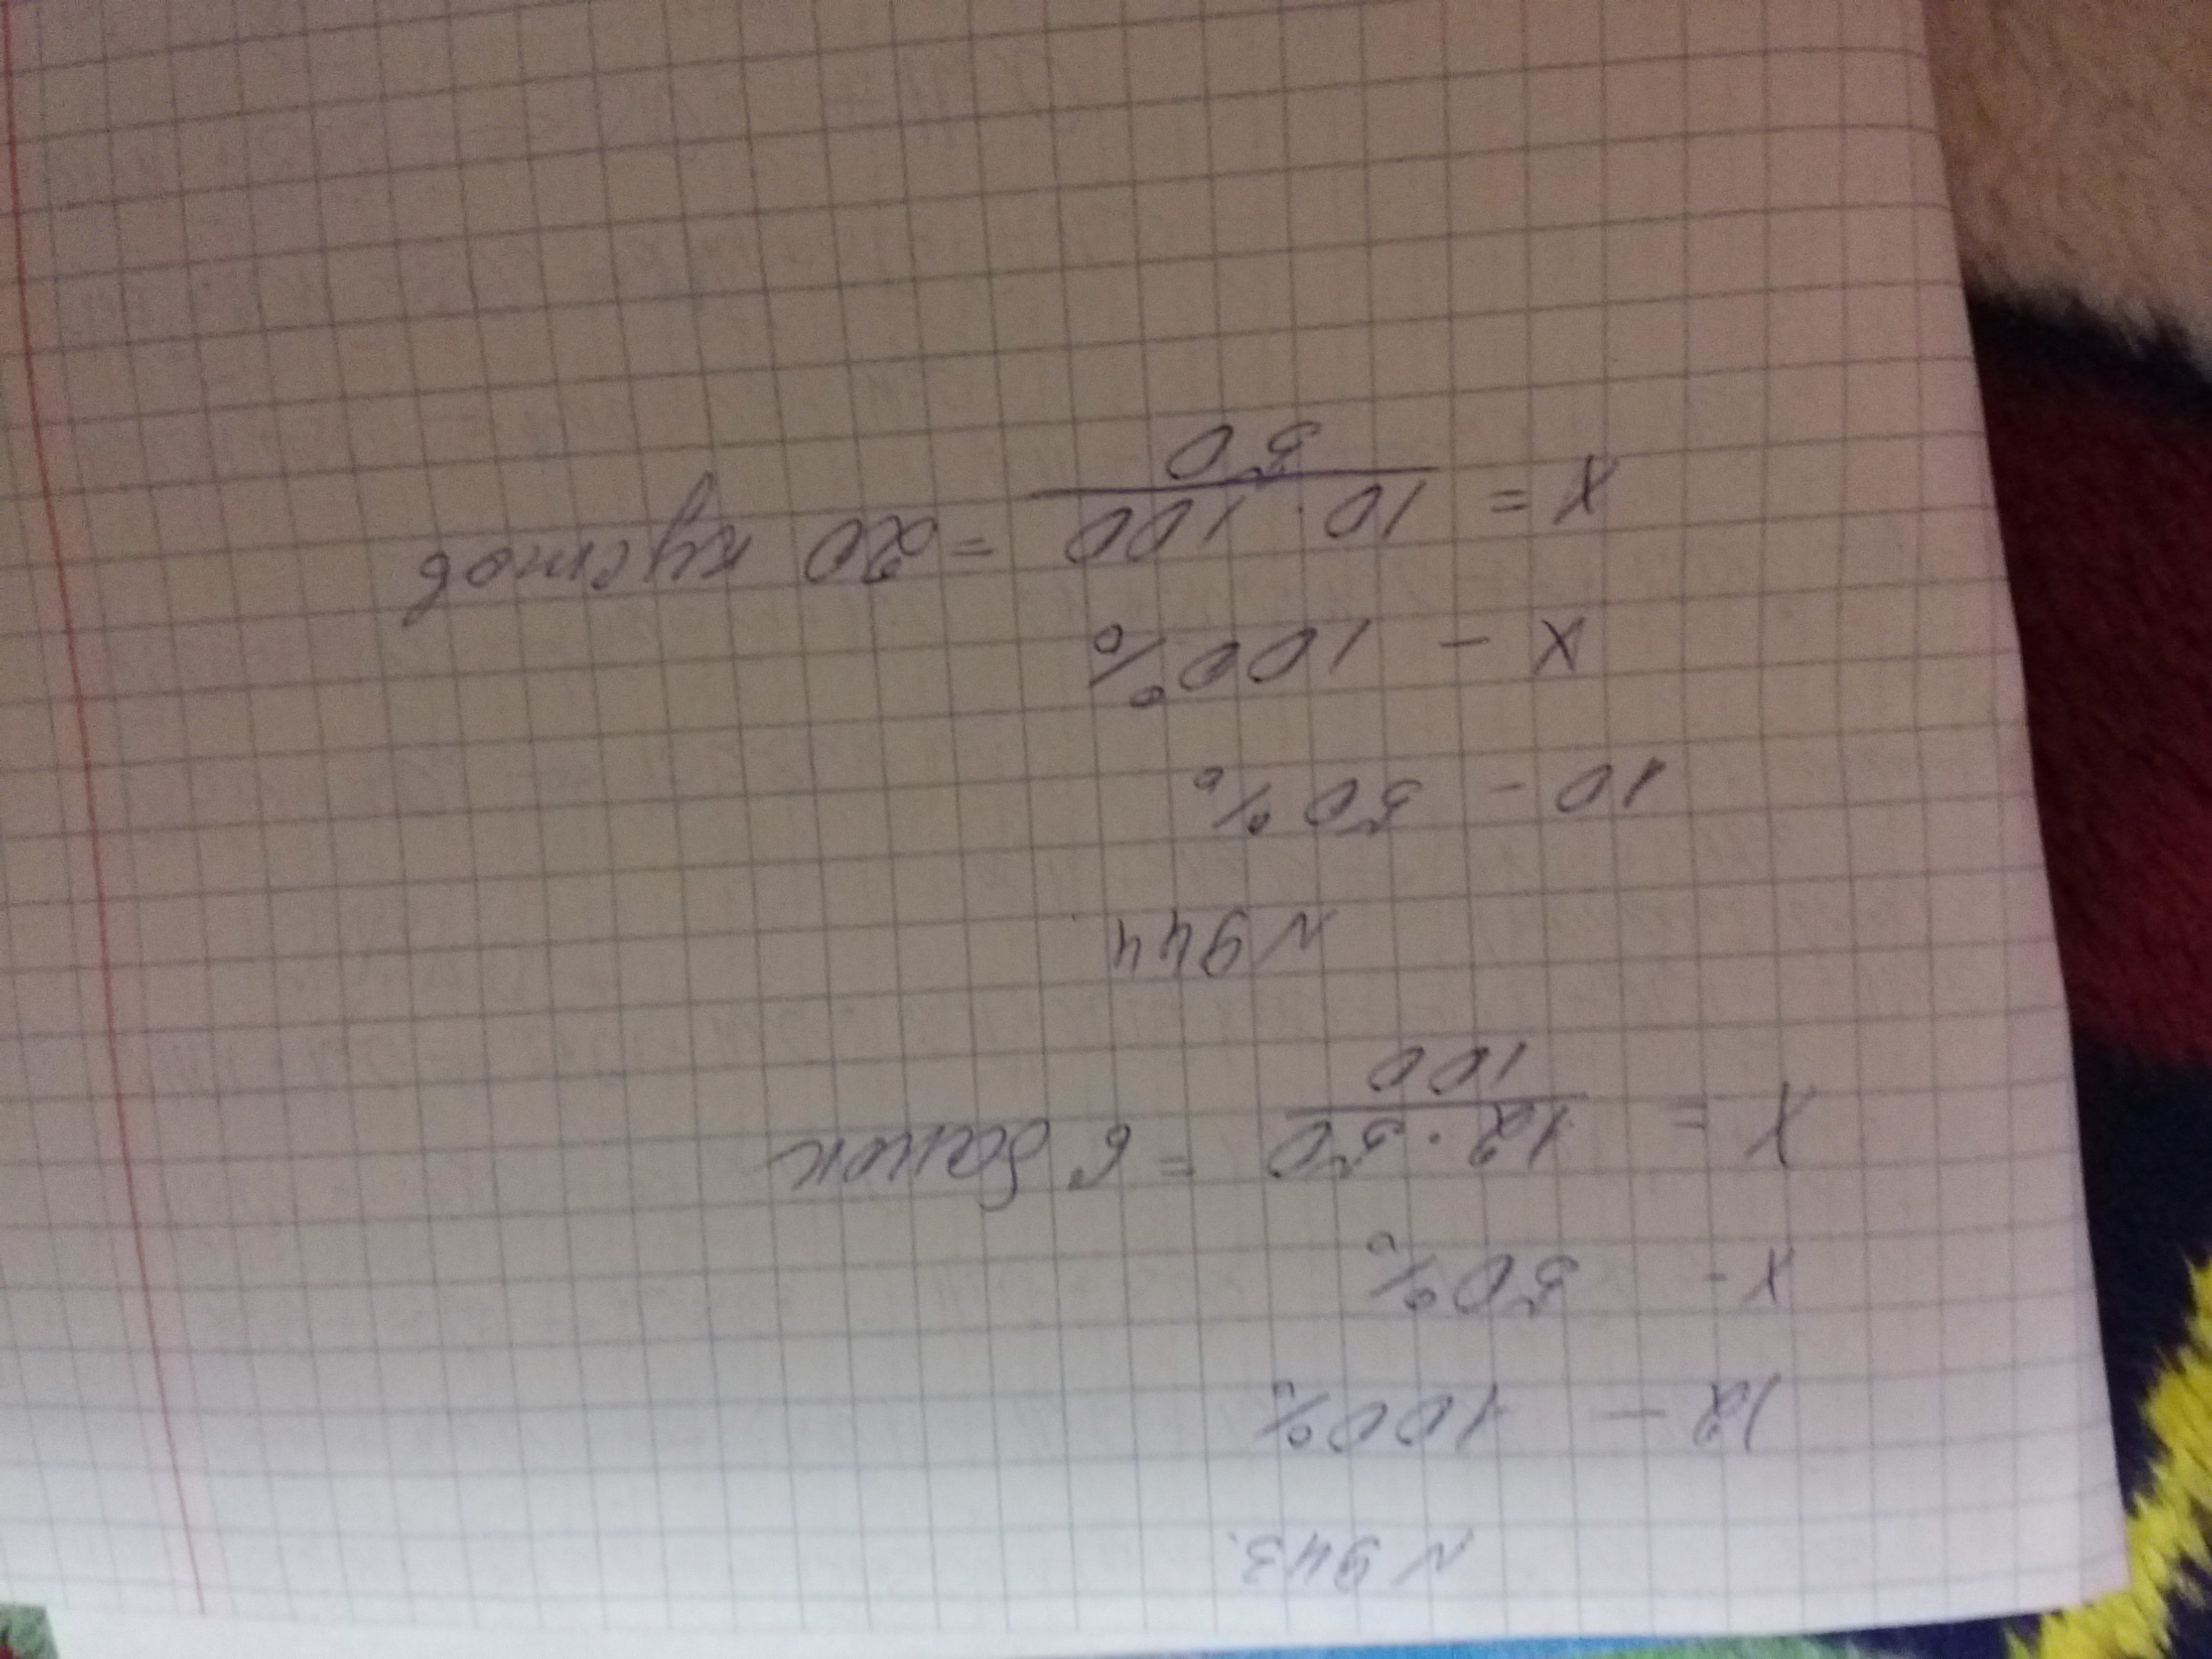 N 943.
12 - 100%
x - 50%
x = 12 · 50 / 100 = 6 банок
N 944
10 - 50%
x - 100%
x = 10 · 100 / 50 = 20 кустов